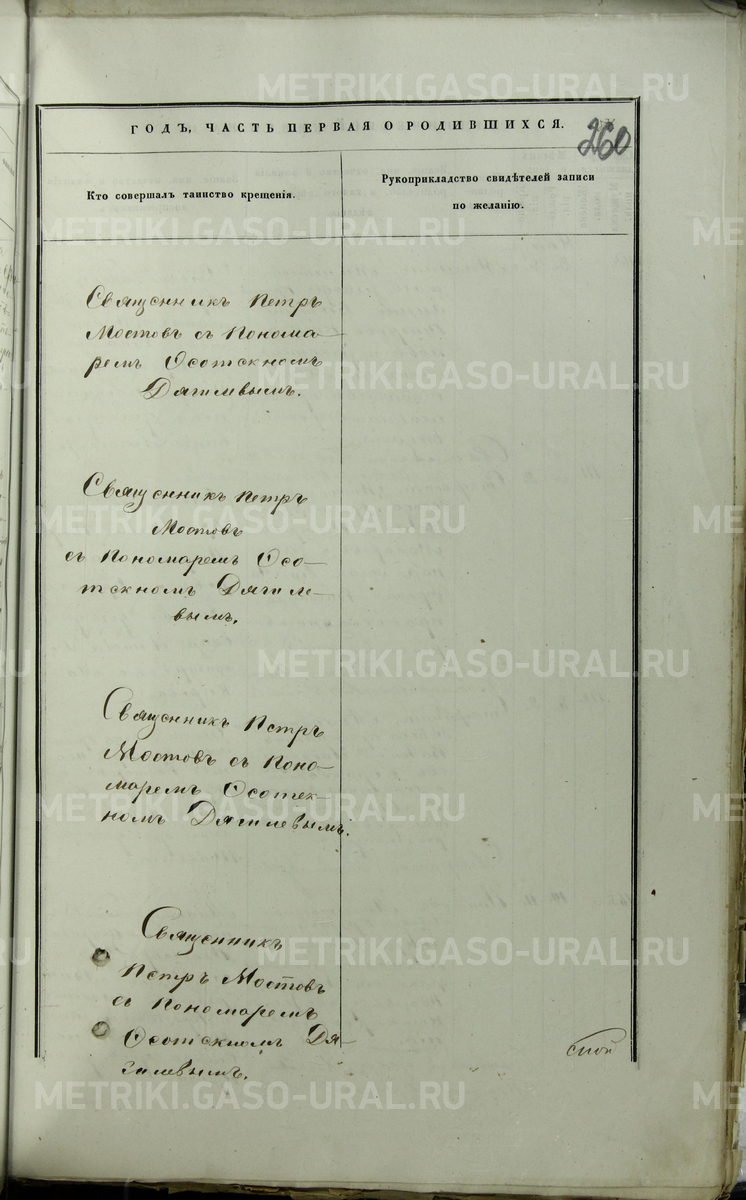 METRIKI.GASO-URAL.RU
ГОДЪ, ЧАСТЬ ПЕРВАЯ О РОДИВШИХСЯ.
260
Кто совершалъ таинство крещенія.
Рукоприкладство свидѣтелей записи
по желанію.
Священникъ Петръ
Мостовъ съ Понома-
ремъ Ѳеотекномъ
Дягилевымъ.
Священникъ Петръ
Мостовъ
съ Пономаремъ Ѳео-
текномъ Дягиле-
вымъ.
Священникъ Петръ
Мостовъ съ Поно-
маремъ Ѳеотек-
номъ Дягилевымъ.
Священникъ
Петръ Мостовъ
съ Пономаремъ
Ѳеотекномъ Дя-
гилевымъ.